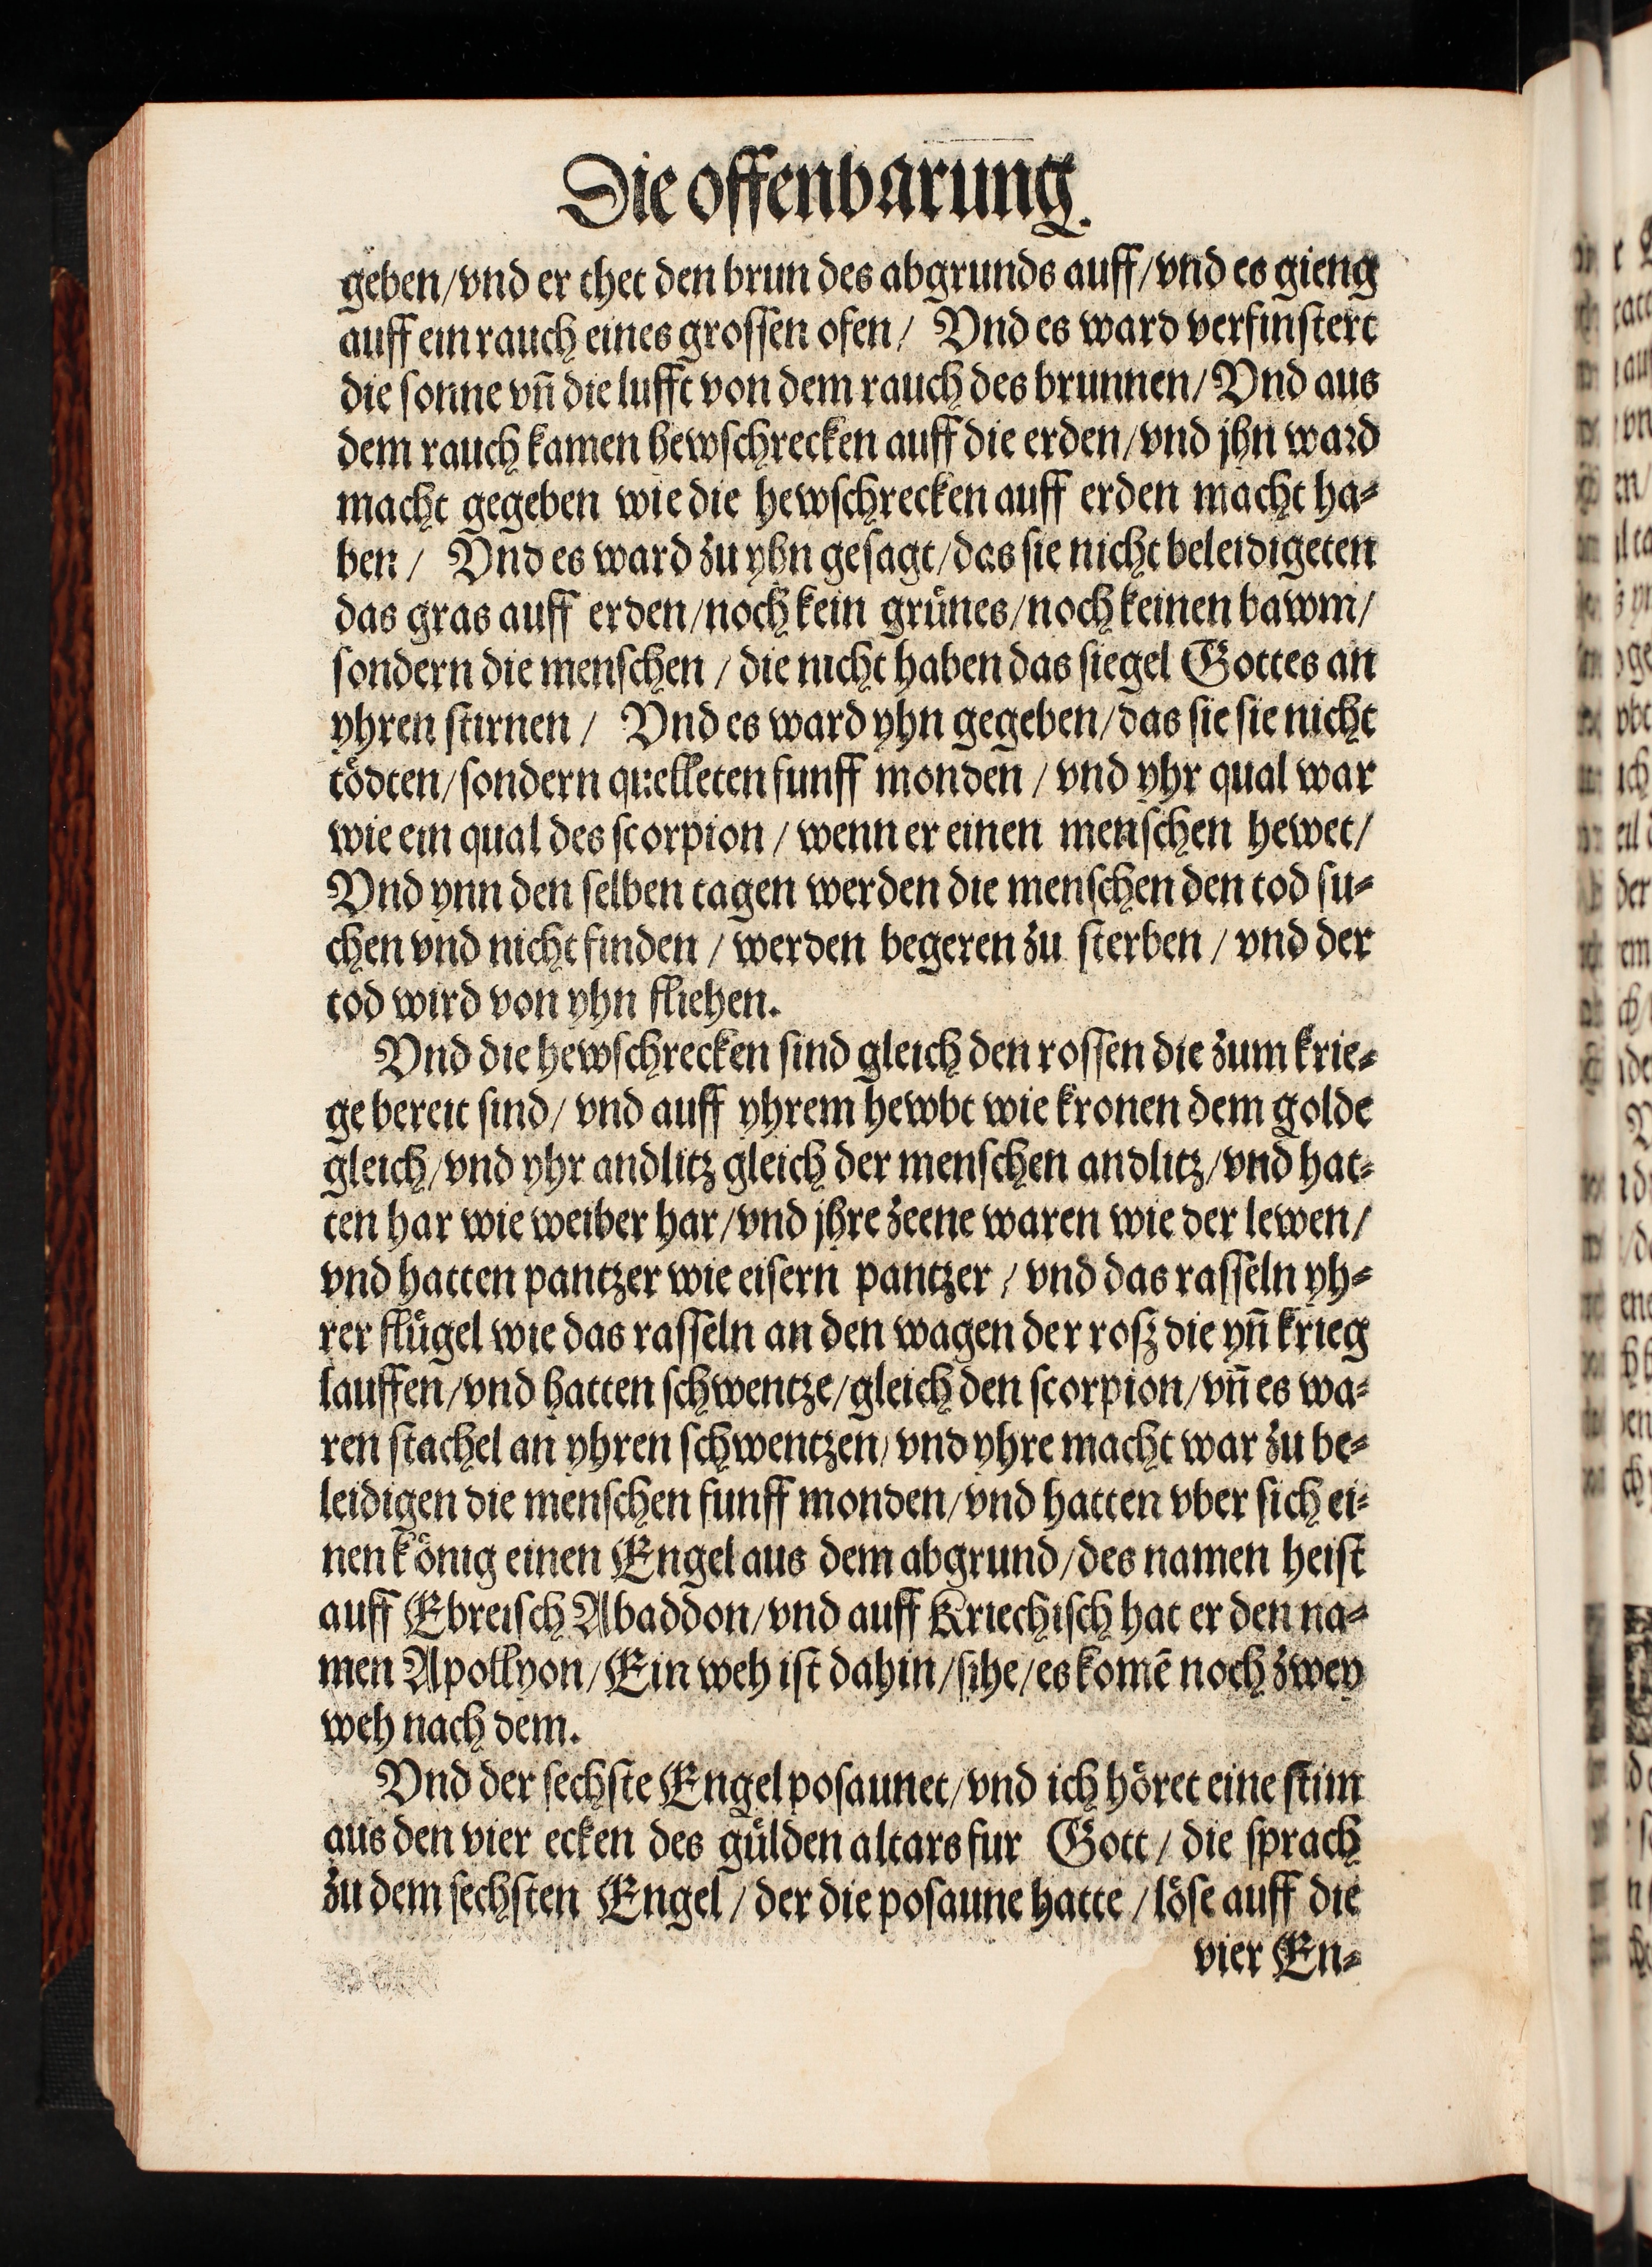 Die offenbarung.
geben/vnd er thet den brun des abgrunds auff/vnd es gieng
auff ein rauch eines grossen ofen/ Vnd es ward verfinstert
die sonne vn̄ die lufft von dem rauch des brunnen/Vnd aus
dem rauch kamen hewschrecken auff die erden/vnd jhn ward
macht gegeben wie die hewschrecken auff erden macht ha-
ben/ Vnd es ward zu yhn gesagt/das sie nicht beleidigeten
das gras auff erden/noch kein grůnes/noch keinen bawm/
sondern die menschen/die nicht haben das siegel Gottes an
yhren stirnen/ Vnd es ward yhn gegeben/das sie sie nicht
tödten/sondern quelleten funff monden/vnd yhr qual war
wie ein qual des scorpion/wenn er einen menschen hewet/
Vnd ynn den selben tagen werden die menschen den tod su-
chen vnd nicht finden/werden begeren zu sterben/vnd der
tod wird von yhn fliehen.
Vnd die hewschrecken sind gleich den rossen die zum krie-
ge bereit sind/vnd auff yhrem hewbt wie kronen dem golde
gleich/vnd yhr andlitz gleich der menschen andlitz/vnd hat-
ten har wie weiber har/vnd jhre zeene waren wie der lewen/
vnd hatten pantzer wie eisern pantzer/vnd das rasseln yh-
rer flůgel wie das rasseln an den wagen der rosz die yn̄ krieg
lauffen/vnd hatten schwentze/gleich den scorpion/vn̄ es wa-
ren stachel an yhren schwentzen/vnd yhre macht war zu be-
leidigen die menschen funff monden/vnd hatten vber sich ei-
nen könig einen Engel aus dem abgrund/des namen heist
auff Ebreisch Abaddon/vnd auff Kriechisch hat er den na-
men Apollyon/Ein weh ist dahin/sihe/es komē noch zwey
weh nach dem.
Vnd der sechste Engel posaunet/vnd ich höret eine stim
aus den vier ecken des gůlden altars fur Gott/die sprach
zu dem sechsten Engel/der die posaune hatte/löse auff die
vier En-